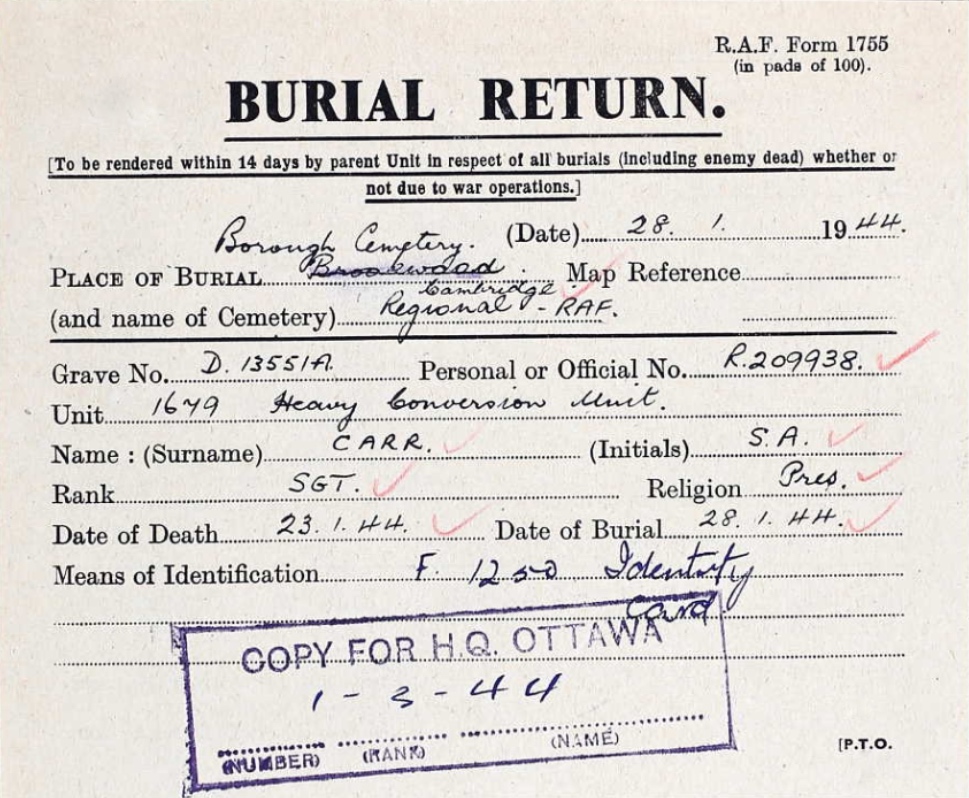 R.A.F. Form 1755
(in pads of 100).
BURIAL RETURN.
[To be rendered within 14 days by parent Unit in respect of all burials (including enemy dead) whether or
not due to war operations.]
Borough Cemetery. (Date) 28. 1. 1944.
PLACE OF BURIAL Brookwood. Map Reference
Cambridge
(and name of Cemetery) Regional - RAF.
Grave No. D. 13551A. Personal or Official No. R.209938.
Unit 1679 Heavy Conversion Unit.
Name : (Surname) CARR. (Initials) S.A.
Rank SGT. Religion Pres.
Date of Death 23.1.44. Date of Burial 28.1.44.
Means of Identification F. 1250 Identity
Card
COPY FOR H.Q. OTTAWA
1-3-44
(NUMBER) (RANK) (NAME)
[P.T.O.